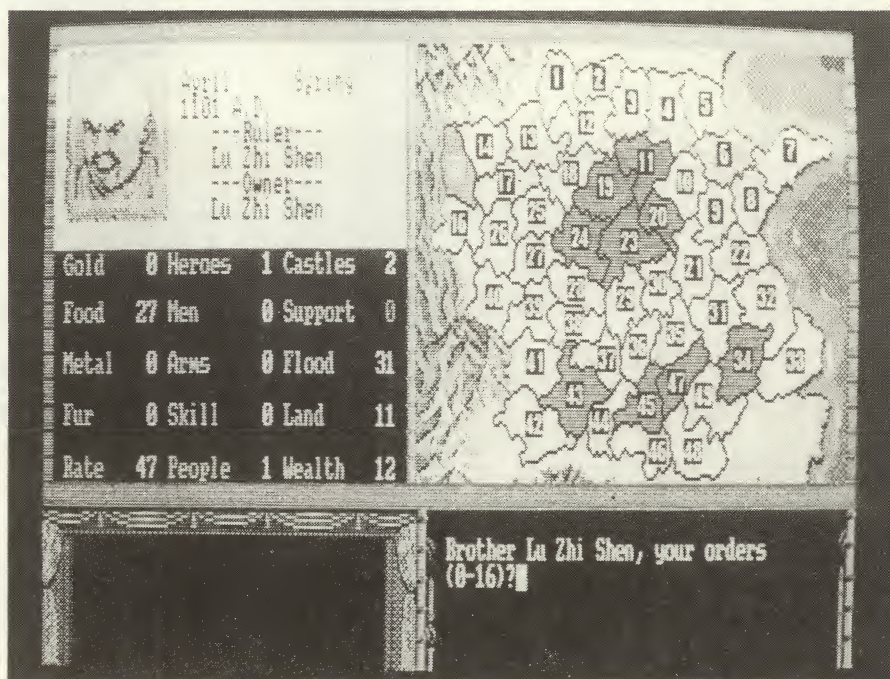 April Spring
1101 A.D.
---Ruler---
Lu Zhi Shen
---Owner---
Lu Zhi Shen
Gold 0 Heroes 1 Castles 2
Food 27 Men 0 Support 0
Metal 0 Arms 0 Flood 31
Fur 0 Skill 0 Land 11
Rate 47 People 1 Wealth 12
1 2 3 4 5
14 13 12 11 6 7
17 18 19 10 8
16 26 25 20 9
24 23
27 21 22
40 39 28 29 30 31 32
38 36 35
41 37 34 33
43 47
42 44 45 49
46 48
Brother Lu Zhi Shen, your orders
(0-16)?